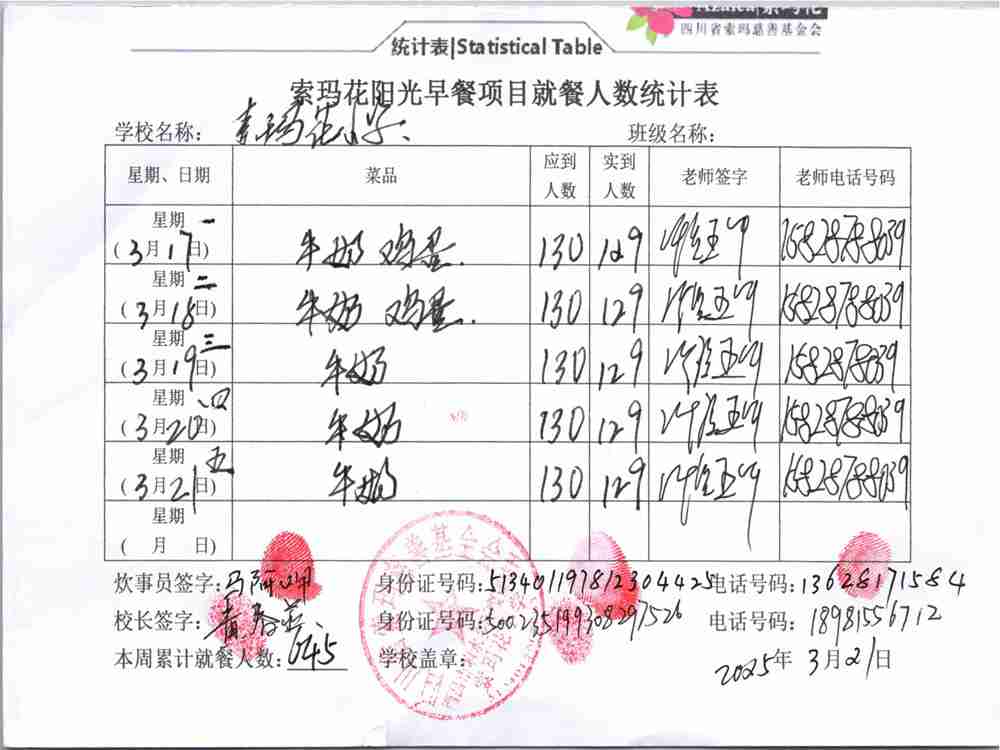 四川省索玛慈善基金会
统计表|Statistical Table
索玛花阳光早餐项目就餐人数统计表
学校名称: 索玛花小学 班级名称:
星期、日期 菜品 应到人数 实到人数 老师签字 老师电话号码
星期一 (3月17日) 牛奶 鸡蛋. 130 129 15828788039
星期二 (3月18日) 牛奶 鸡蛋. 130 129 15828788039
星期三 (3月19日) 牛奶 130 129 15828788039
星期四 (3月20日) 牛奶 130 129 15828788039
星期五 (3月21日) 牛奶 130 129 15828788039
星期 ( 月 日)
炊事员签字: 身份证号码:513401197812304425 电话号码:13628171584
校长签字: 身份证号码:500235199308297526 电话号码: 18981556712
本周累计就餐人数: 645 学校盖章: 2025年 3月21日